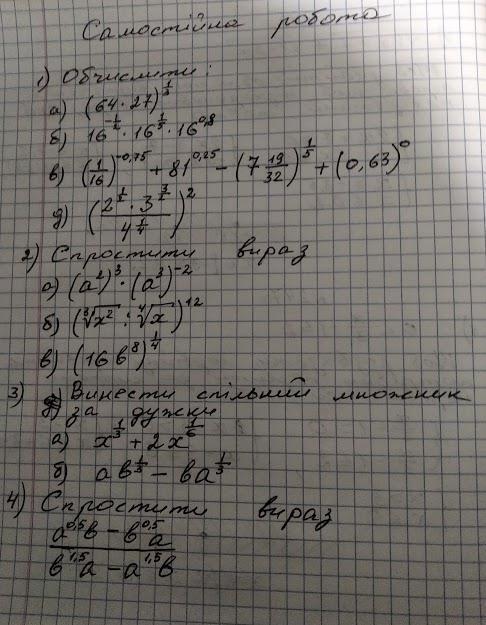 Самостійна робота
1) Обчислити:
а) (64·27)^{\frac{1}{3}}
б) 16^{-\frac{1}{2}} · 16^{\frac{1}{5}} · 16^{0,8}
в) (\frac{1}{16})^{-0,75} + 81^{0,25} - (7\frac{19}{32})^{\frac{1}{5}} + (0,63)^0
д) (\frac{2^{\frac{1}{2}} · 3^{\frac{3}{2}}}{4^{\frac{1}{4}}})^2
2) Спростити вираз
а) (a^2)^3 · (a^3)^{-2}
б) (\sqrt[3]{x^2} : \sqrt[4]{x})^{12}
в) (16 b^8)^{\frac{1}{4}}
3) Винести спільний множник
за дужки
а) x^{\frac{1}{3}} + 2x^{\frac{1}{6}}
б) ab^{\frac{1}{3}} - ba^{\frac{1}{3}}
4) Спростити вираз
\frac{a^{0,5}b - b^{0,5}a}{b^{1,5}a - a^{1,5}b}